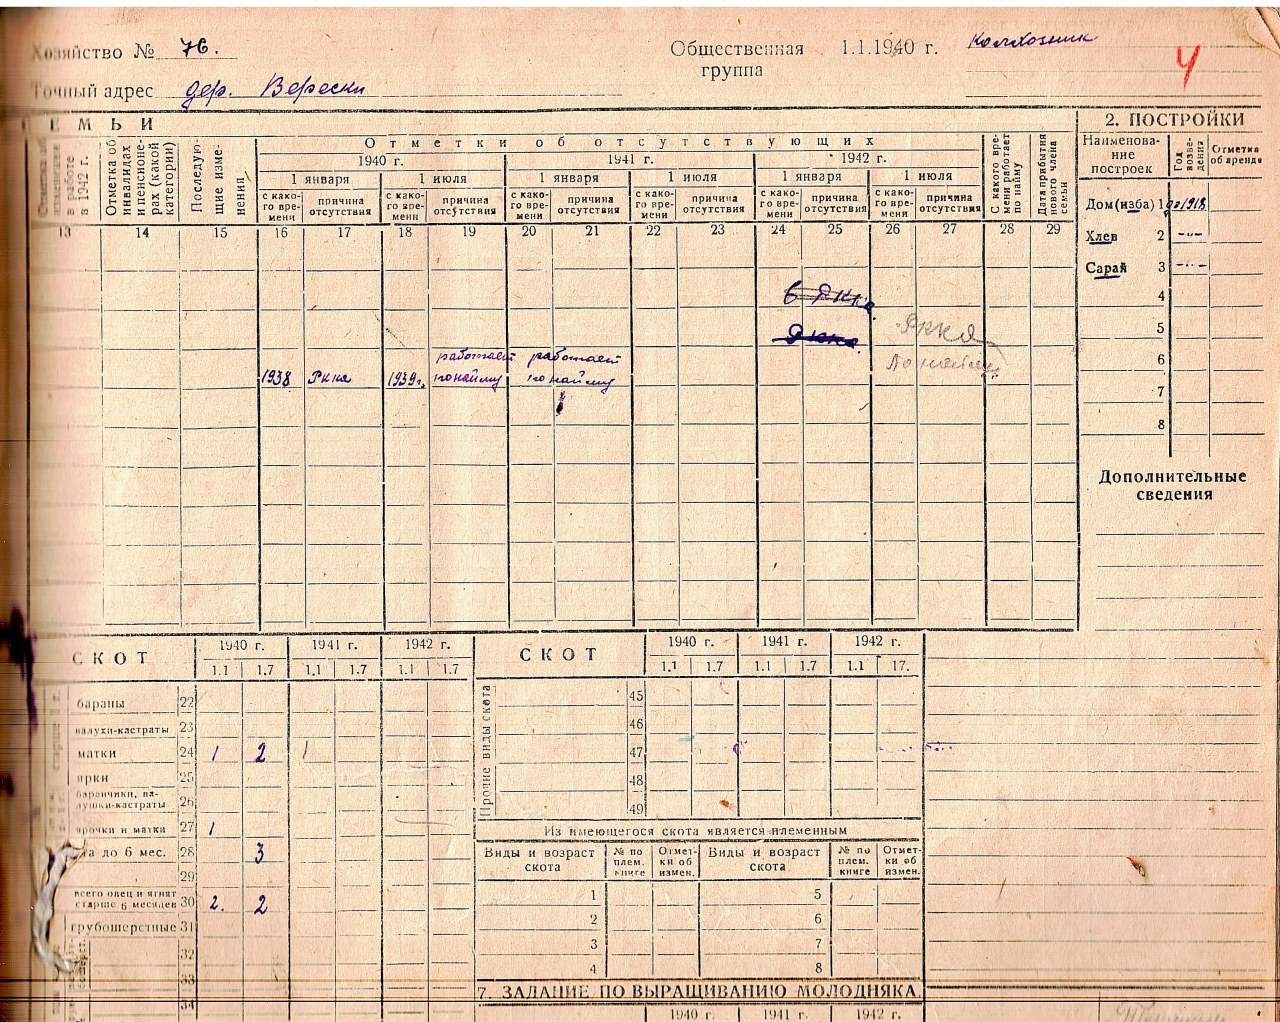 Хозяйство № 76.
Общественная группа 1.1.1940 г. Колхозник
4
Точный адрес дер. Верески
СЕМЬИ
2. ПОСТРОЙКИ
в работе в 1942 г.
Отметка об инвалидах и пенсионерах (какой категории)
Последующие изменения
Отметки об отсутствующих
1940 г. 1941 г. 1942 г.
1 января 1 июля 1 января 1 июля 1 января 1 июля
с какого времени причина отсутствия с какого времени причина отсутствия с какого времени причина отсутствия с какого времени причина отсутствия с какого времени причина отсутствия с какого времени причина отсутствия
С какого времени работает по найму
Дата прибытия нового члена семьи
Наименование построек
Год возведения
Отметка об аренде
13 14 15 16 17 18 19 20 21 22 23 24 25 26 27 28 29
Дом (изба) 1 до 1918
Хлев 2 -"-
Сарай 3 -"-
4
5
6
7
8
в РККА
РККА
РККА
По найму
работает работает
1938 РККА 1939 г. по найму по найму
Дополнительные сведения
СКОТ
1940 г. 1941 г. 1942 г.
1.1 1.7 1.1 1.7 1.1 1.7
бараны 22
валухи-кастраты 23
матки 24 1 2 1
ярки 25
баранчики, валушки-кастраты 26
ярочки и матки 27 1
до 6 мес. 28 3
29
всего овец и ягнят старше 6 месяцев 30 2. 2
грубошерстные 31
32
33
34
СКОТ
1940 г. 1941 г. 1942 г.
1.1 1.7 1.1 1.7 1.1 17.
Прочие виды скота
45
46
47
48
49
Из имеющегося скота является племенным
Виды и возраст скота № по плем. книге Отметки об измен. Виды и возраст скота № по плем. книге Отметки об измен.
1 5
2 6
3 7
4 8
7. ЗАДАНИЕ ПО ВЫРАЩИВАНИЮ МОЛОДНЯКА
1940 г. 1941 г. 1942 г.